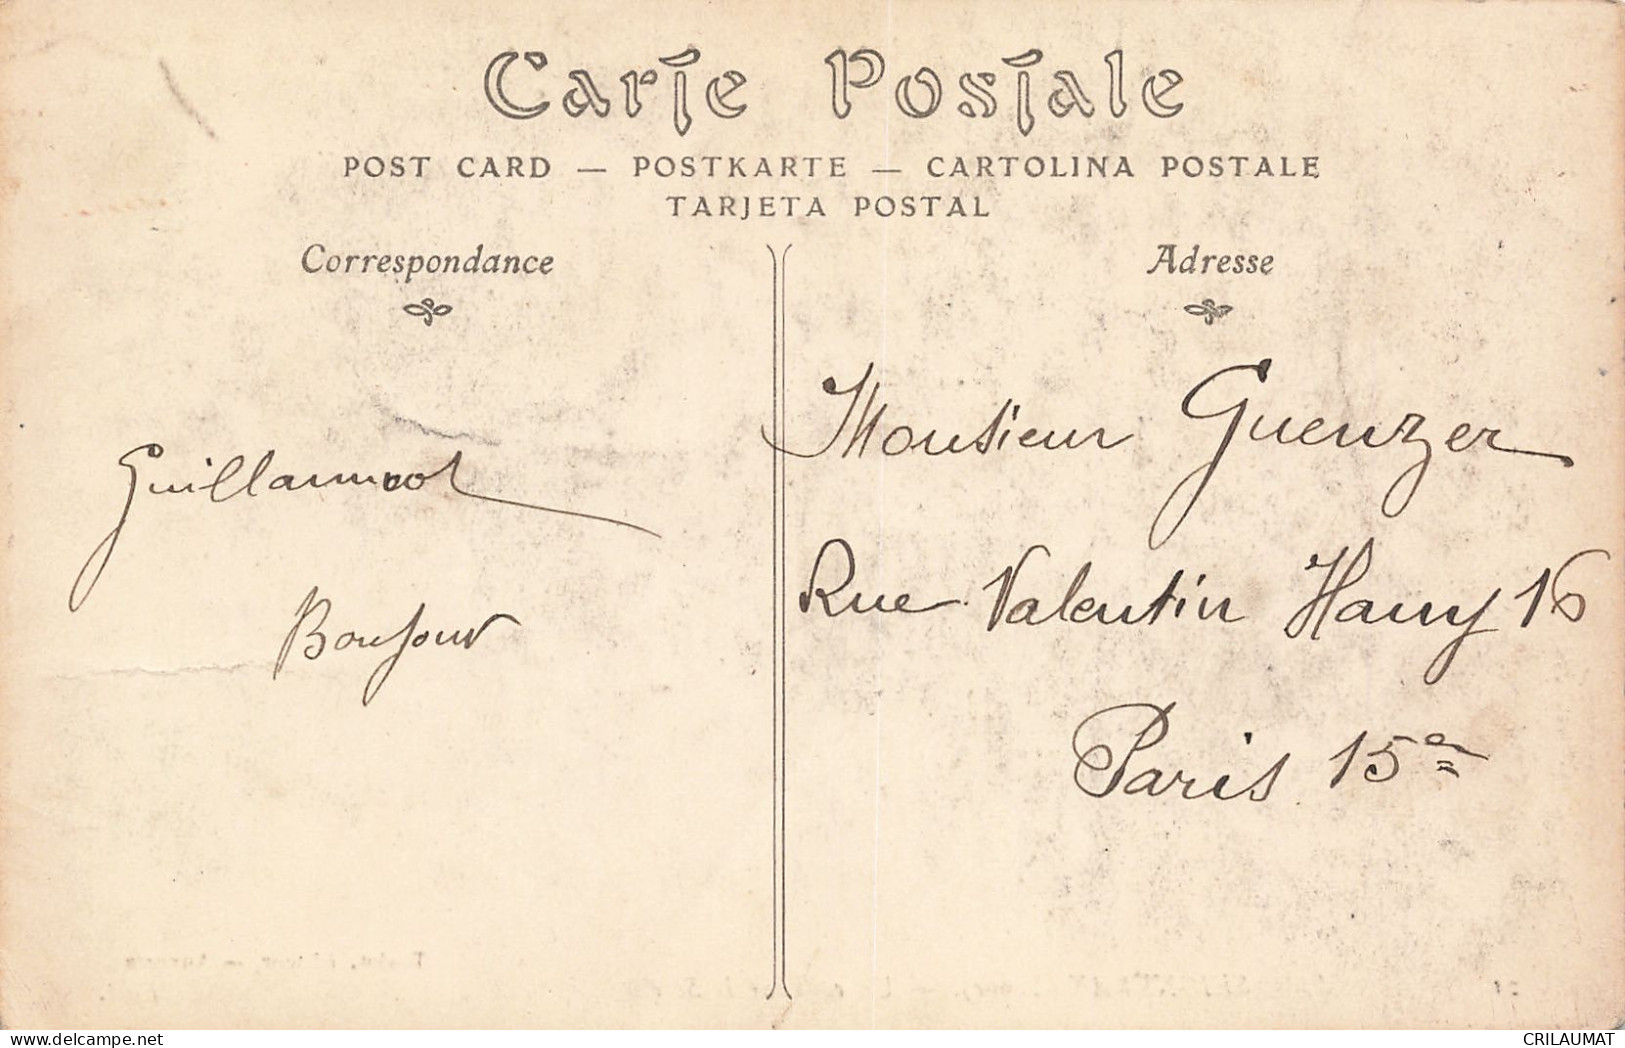 Carte Postale
POST CARD — POSTKARTE — CARTOLINA POSTALE
TARJETA POSTAL
Correspondance
Adresse
Guillaumot
Bonjour
Monsieur Guenzer
Rue Valentin Hauy 16
Paris 15e
delcampe.net
CRILAUMAT